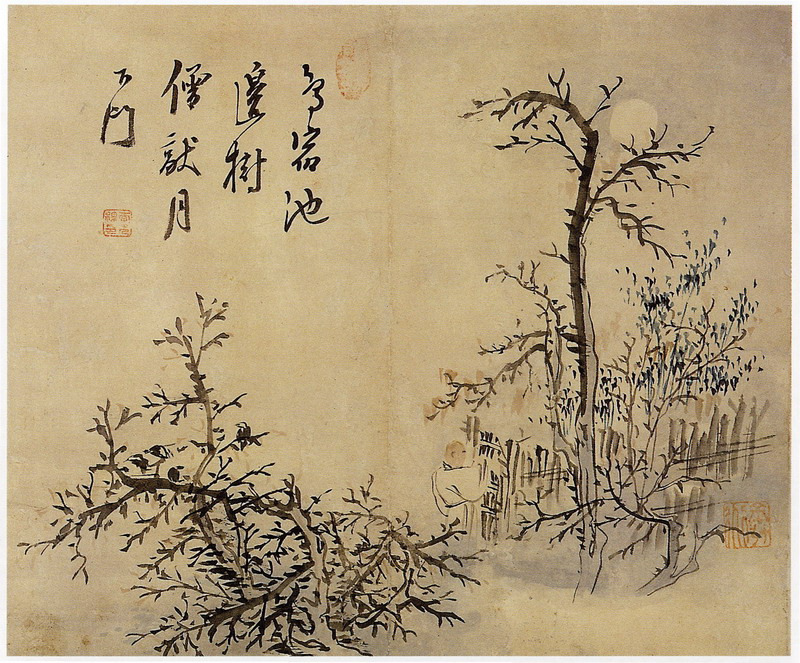 鳥宿池
邊樹
僧敲月
下門